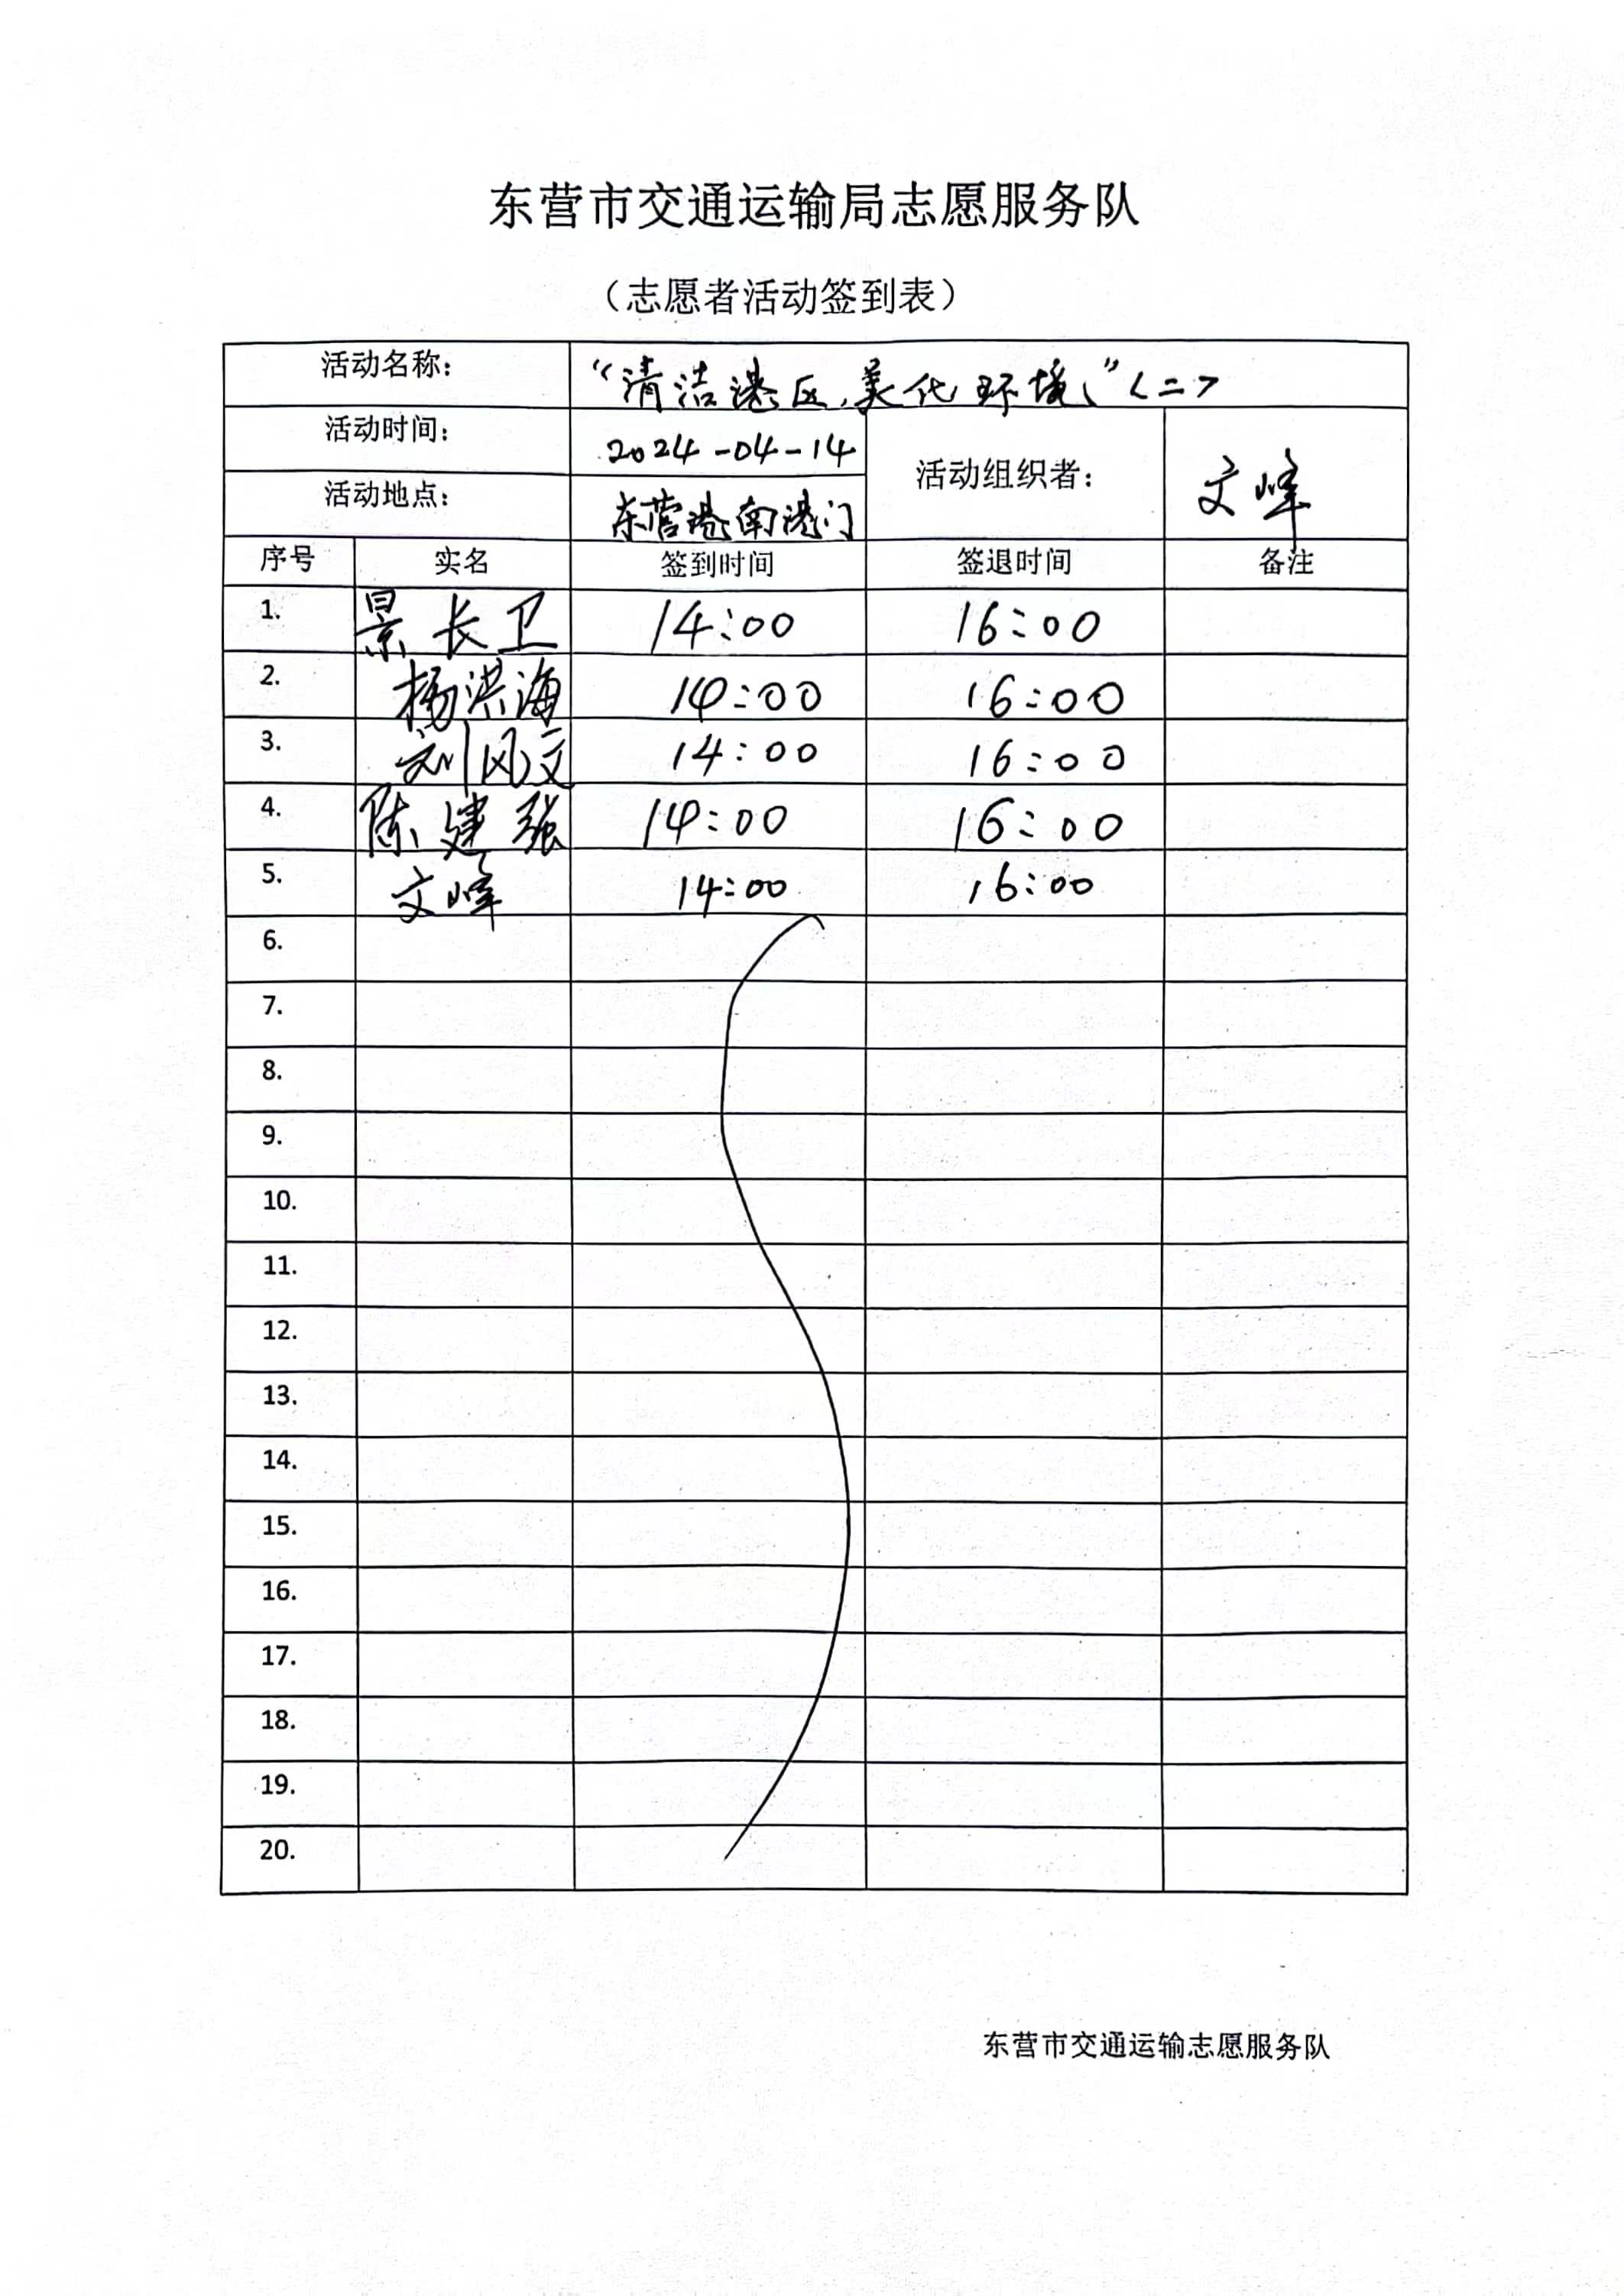 东营市交通运输局志愿服务队
（志愿者活动签到表）
活动名称： “清洁港区，美化环境”〈二〉
活动时间： 2024-04-14 活动组织者： 文峰
活动地点： 东营港南港门
序号 实名 签到时间 签退时间 备注
1. 景长卫 14:00 16:00
2. 杨洪海 14:00 16:00
3. 刘风文 14:00 16:00
4. 陈建强 14:00 16:00
5. 文峰 14:00 16:00
6.
7.
8.
9.
10.
11.
12.
13.
14.
15.
16.
17.
18.
19.
20.
东营市交通运输志愿服务队